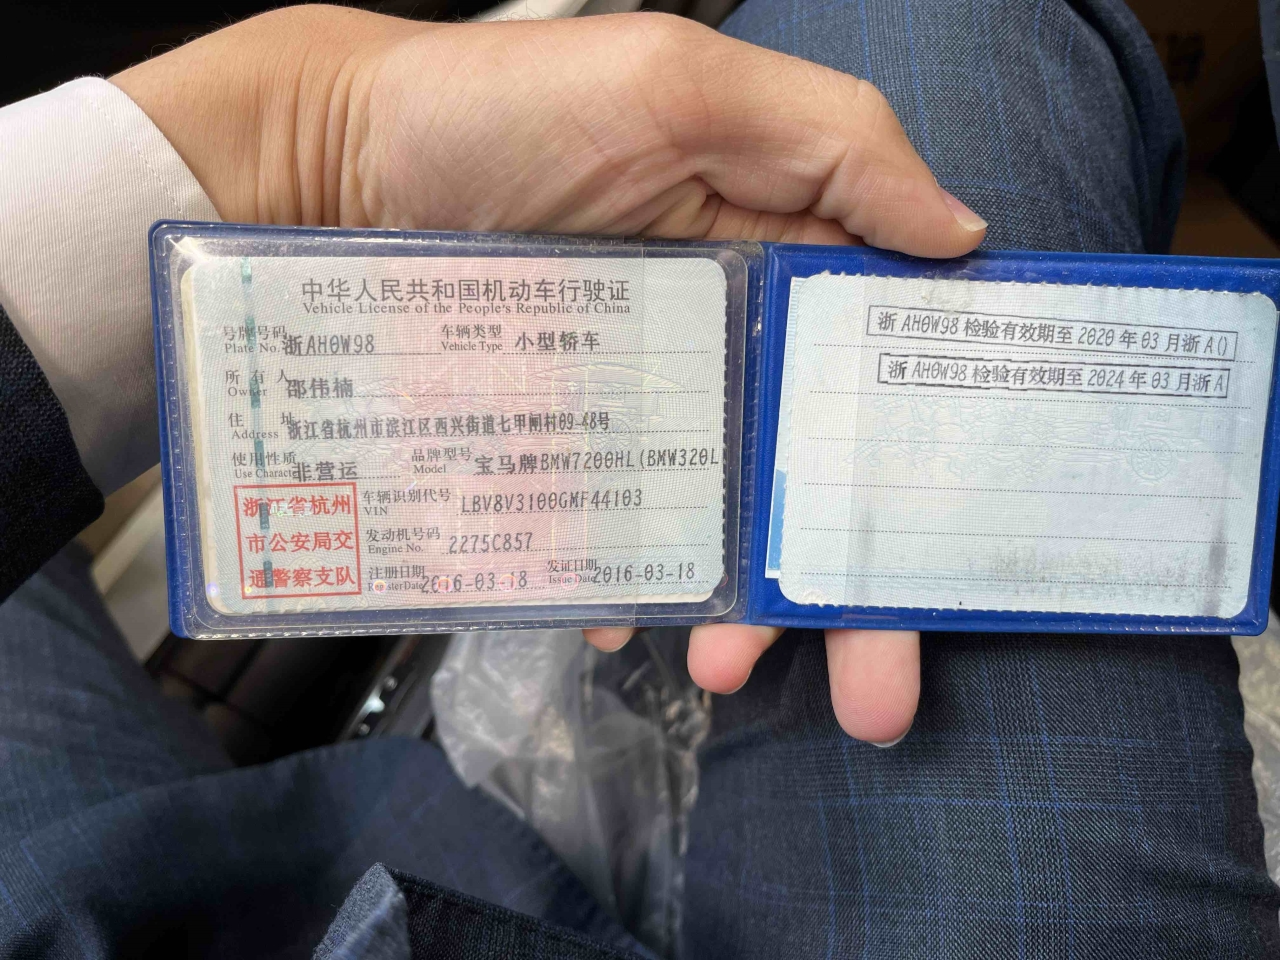 中华人民共和国机动车行驶证
Vehicle License of the People's Republic of China
号牌号码 Plate No. 浙AH0W98 车辆类型 Vehicle Type 小型轿车
所有人 Owner 邵伟楠
住址 Address 浙江省杭州市滨江区西兴街道七甲闸村09-48号
使用性质 Use Character 非营运 品牌型号 Model 宝马牌BMW7200HL(BMW320L
浙江省杭州
市公安局交
通警察支队
车辆识别代号 VIN LBV8V3100GMF44103
发动机号码 Engine No. 2275C857
注册日期 Register Date 2016-03-18 发证日期 Issue Date 2016-03-18
浙AH0W98检验有效期至2020年03月浙A()
浙AH0W98检验有效期至2024年03月浙A